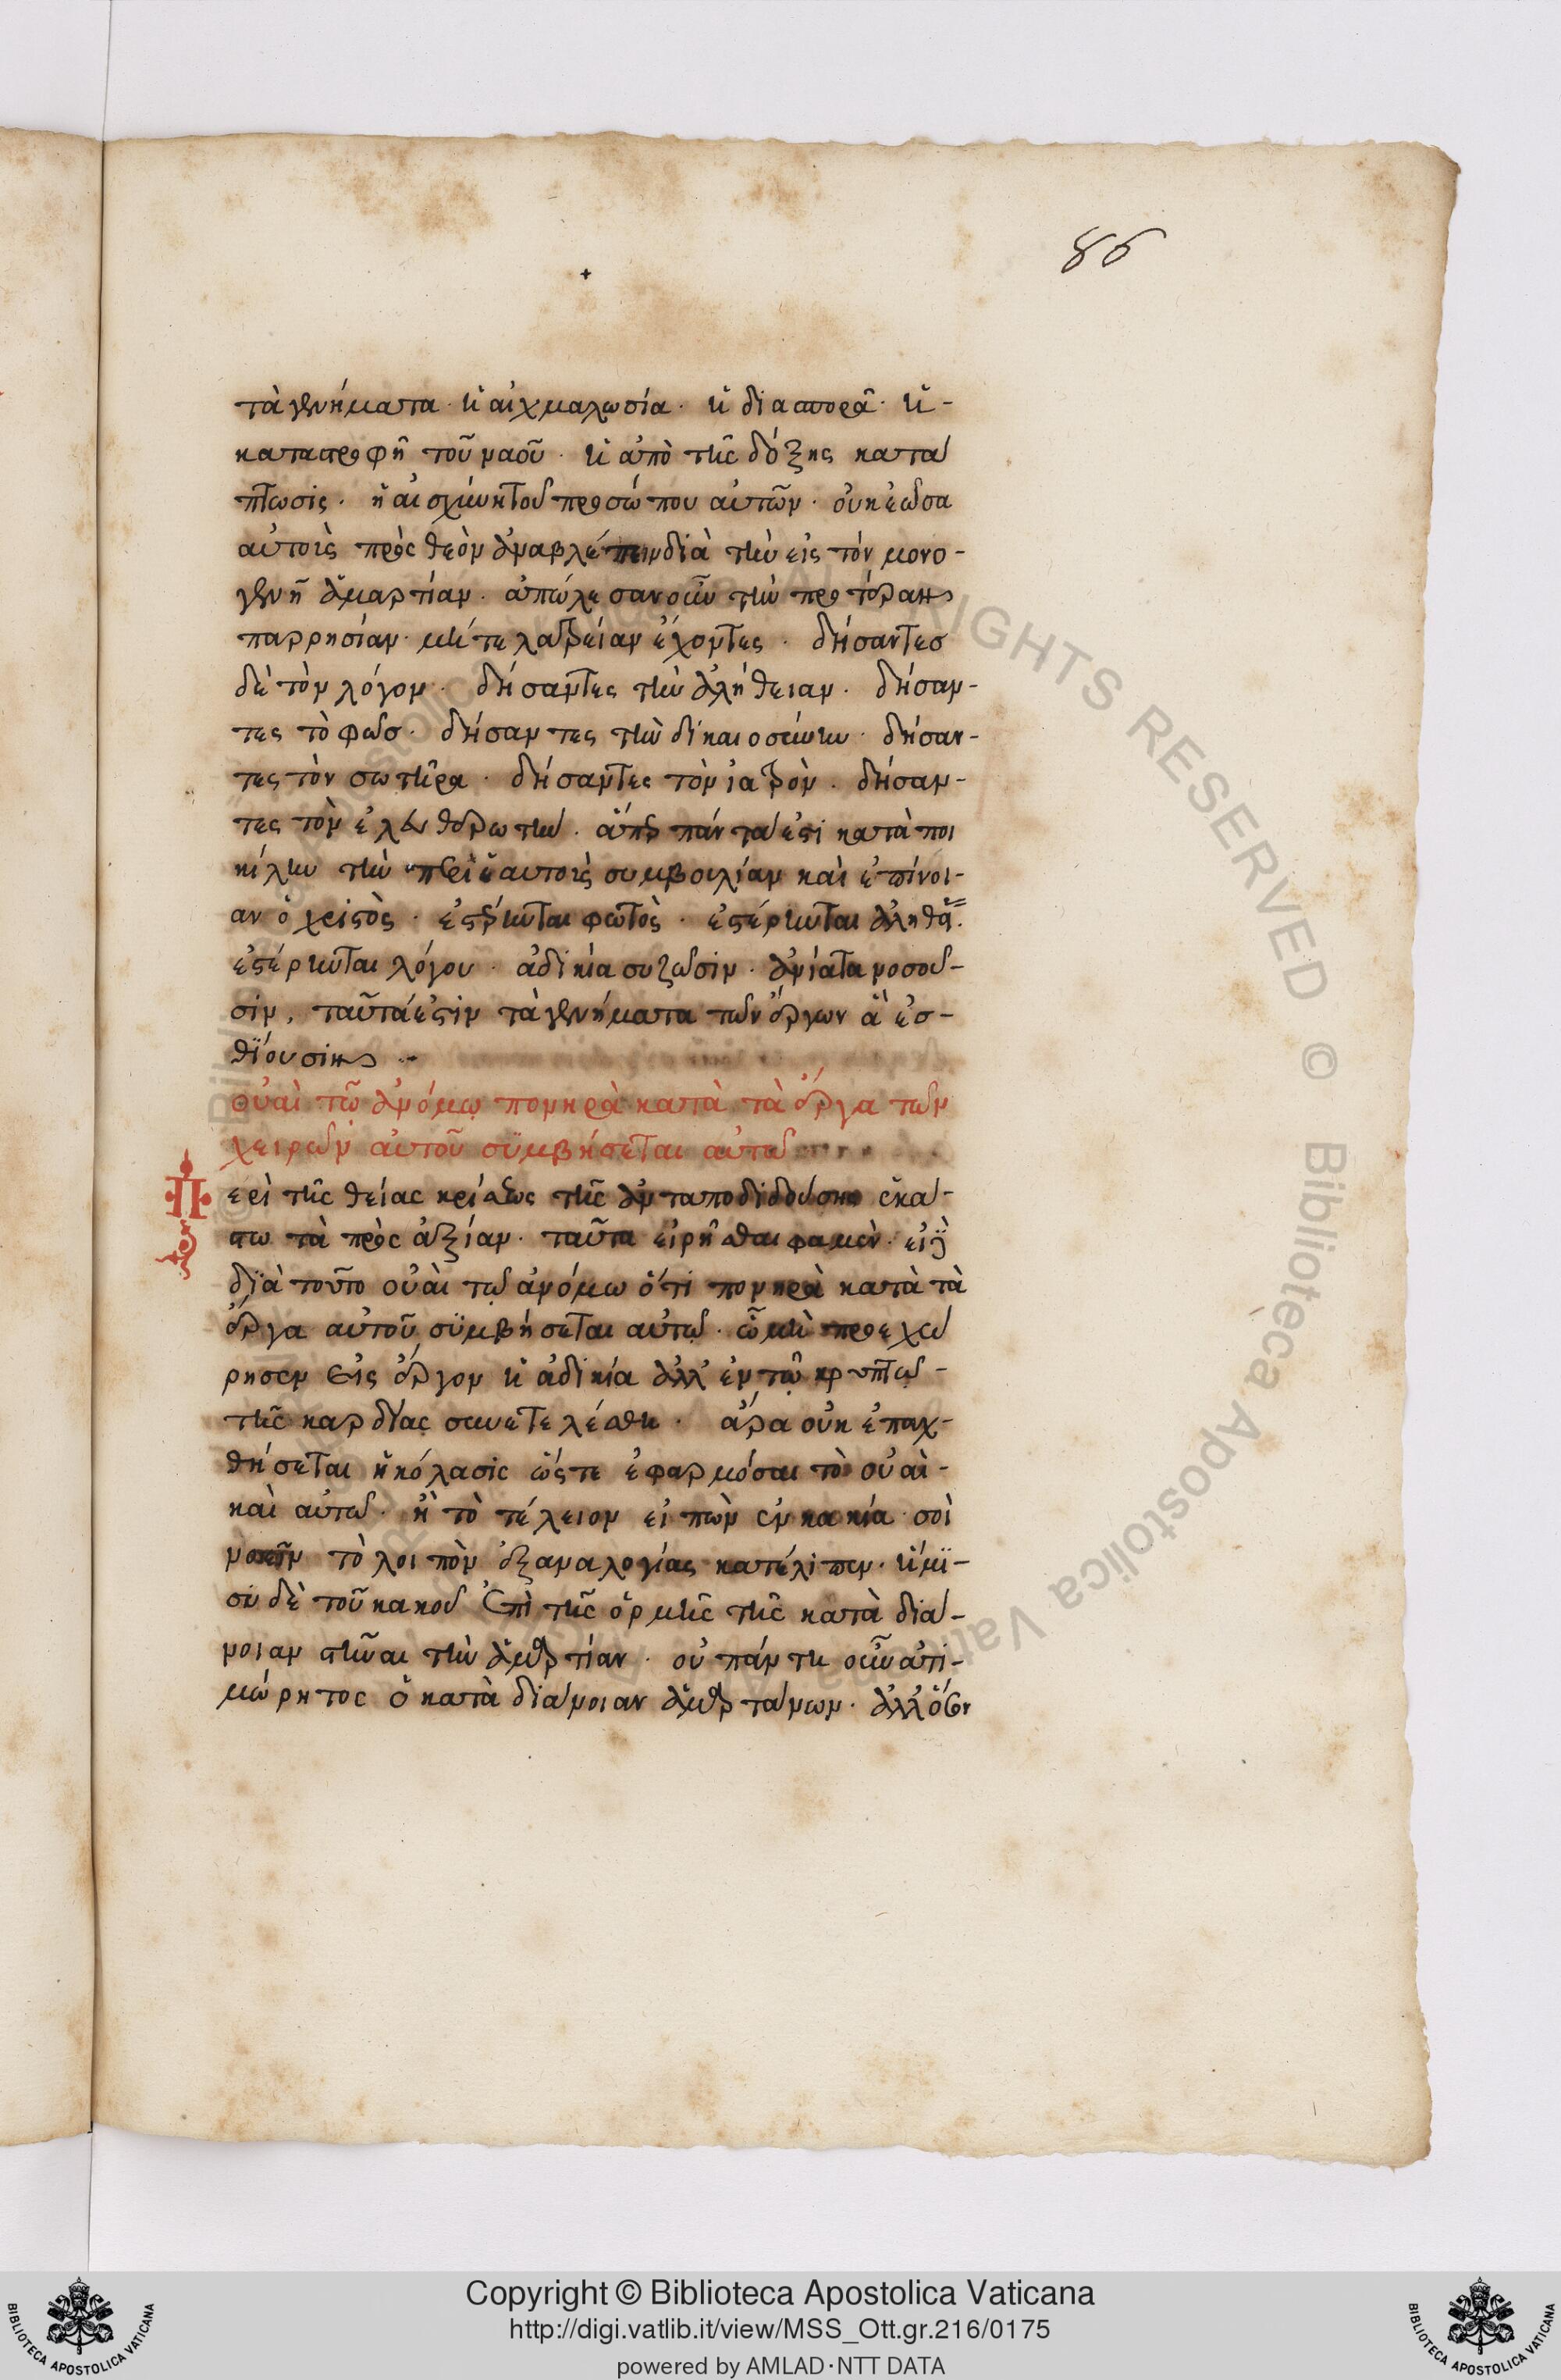 86
τὰ γεννήματα· ἡ αἰχμαλωσία· ἡ διασπορᾶ· ἡ-
καταστροφὴ τοῦ ναοῦ· ἡ ἀπὸ τῆς δόξης κατα
πτωσις· ἡ αἰσχύνη τοῦ προσώπου αὐτῶν· οὐκ ἐῶσα
αὐτοὺς πρὸς θεὸν ἀναβλέπειν διὰ τὴν εἰς τὸν μονο-
γενῆ ἁμαρτίαν· ἀπώλεσαν οὖν τὴν προτέραν
παρρησίαν· μήτε λατρείαν ἔχοντες· δήσαντες
δὲ τὸν λόγον· δήσαντες τὴν ἀλήθειαν· δήσαν-
τες τὸ φῶσ· δήσαντες τὴν δικαιοσύνην· δήσαν-
τες τὸν σωτῆρα· δήσαντες τὸν ἰατρὸν· δήσαν-
τες τὸν ἐλευθερωτὴν· ἅπερ πάντα ἐστι κατὰ ποι
κίλην τὴν περὶ ἑαυτοὺς συμβουλίαν καὶ ἐπίνοι-
αν ὁ χριστὸς· ἐστέρηνται φωτὸς· ἐστέρηνται ἀληθ
ἐστέρηνται λόγου· ἀδικία συζῶσιν· ἀνίατα νοσοῦ-
σιν, ταῦτά ἐστιν τὰ γεννήματα τῶν ἔργων ἃ ἐσ-
θΐουσιν
οὐαὶ τῶ ἀνόμω πονηρὰ κατὰ τὰ ἔργα τῶν
χειρῶν αὐτοῦ συμβήσεται αὐτῶ
Περὶ τῆς θείας κρίσεως τῆς ἀνταποδιδούσης ἑκά-
στω τὰ πρὸς ἀξίαν· ταῦτα εἰρῆσθαι φαμὲν· εἰ
διὰ τοῦτο οὐαὶ τῶ ἀνόμω ὅτι πονηρὰ κατὰ τὰ
ἔργα αὐτοῦ συμβήσεται αὐτῶ· ὧ μὴ προεχώ
ρησεν εἰς ἔργον ἡ ἀδικία ἀλλ' ἐν τῶ κρυπτῶ-
τῆς καρδίας συνετελέσθη· ἆρα οὐκ ἐπαχ-
θήσεται ἡ κόλασις ὥστε ἐφαρμόσαι τὸ οὐαὶ-
καὶ αὐτῶ· ἢ τὸ τέλειον εἰπὼν ἐν κακία σοὶ
νοεῖν τὸ λοιπὸν ἐξ ἀναλογίας κατέλιπεν· ἥμι-
συ δὲ τοῦ κακοῦ ἐπὶ τῆς ὁρμῆς τῆς κατὰ διά-
νοιαν στῆναι τὴν ἁμαρτίαν· οὐ πάντη οὖν ἀτι-
μώρητος ὁ κατὰ διάνοιαν ἁμαρτάνων· ἀλλ' ὅσον
Copyright © Biblioteca Apostolica Vaticana
http://digi.vatlib.it/view/MSS_Ott.gr.216/0175
powered by AMLAD·NTT DATA